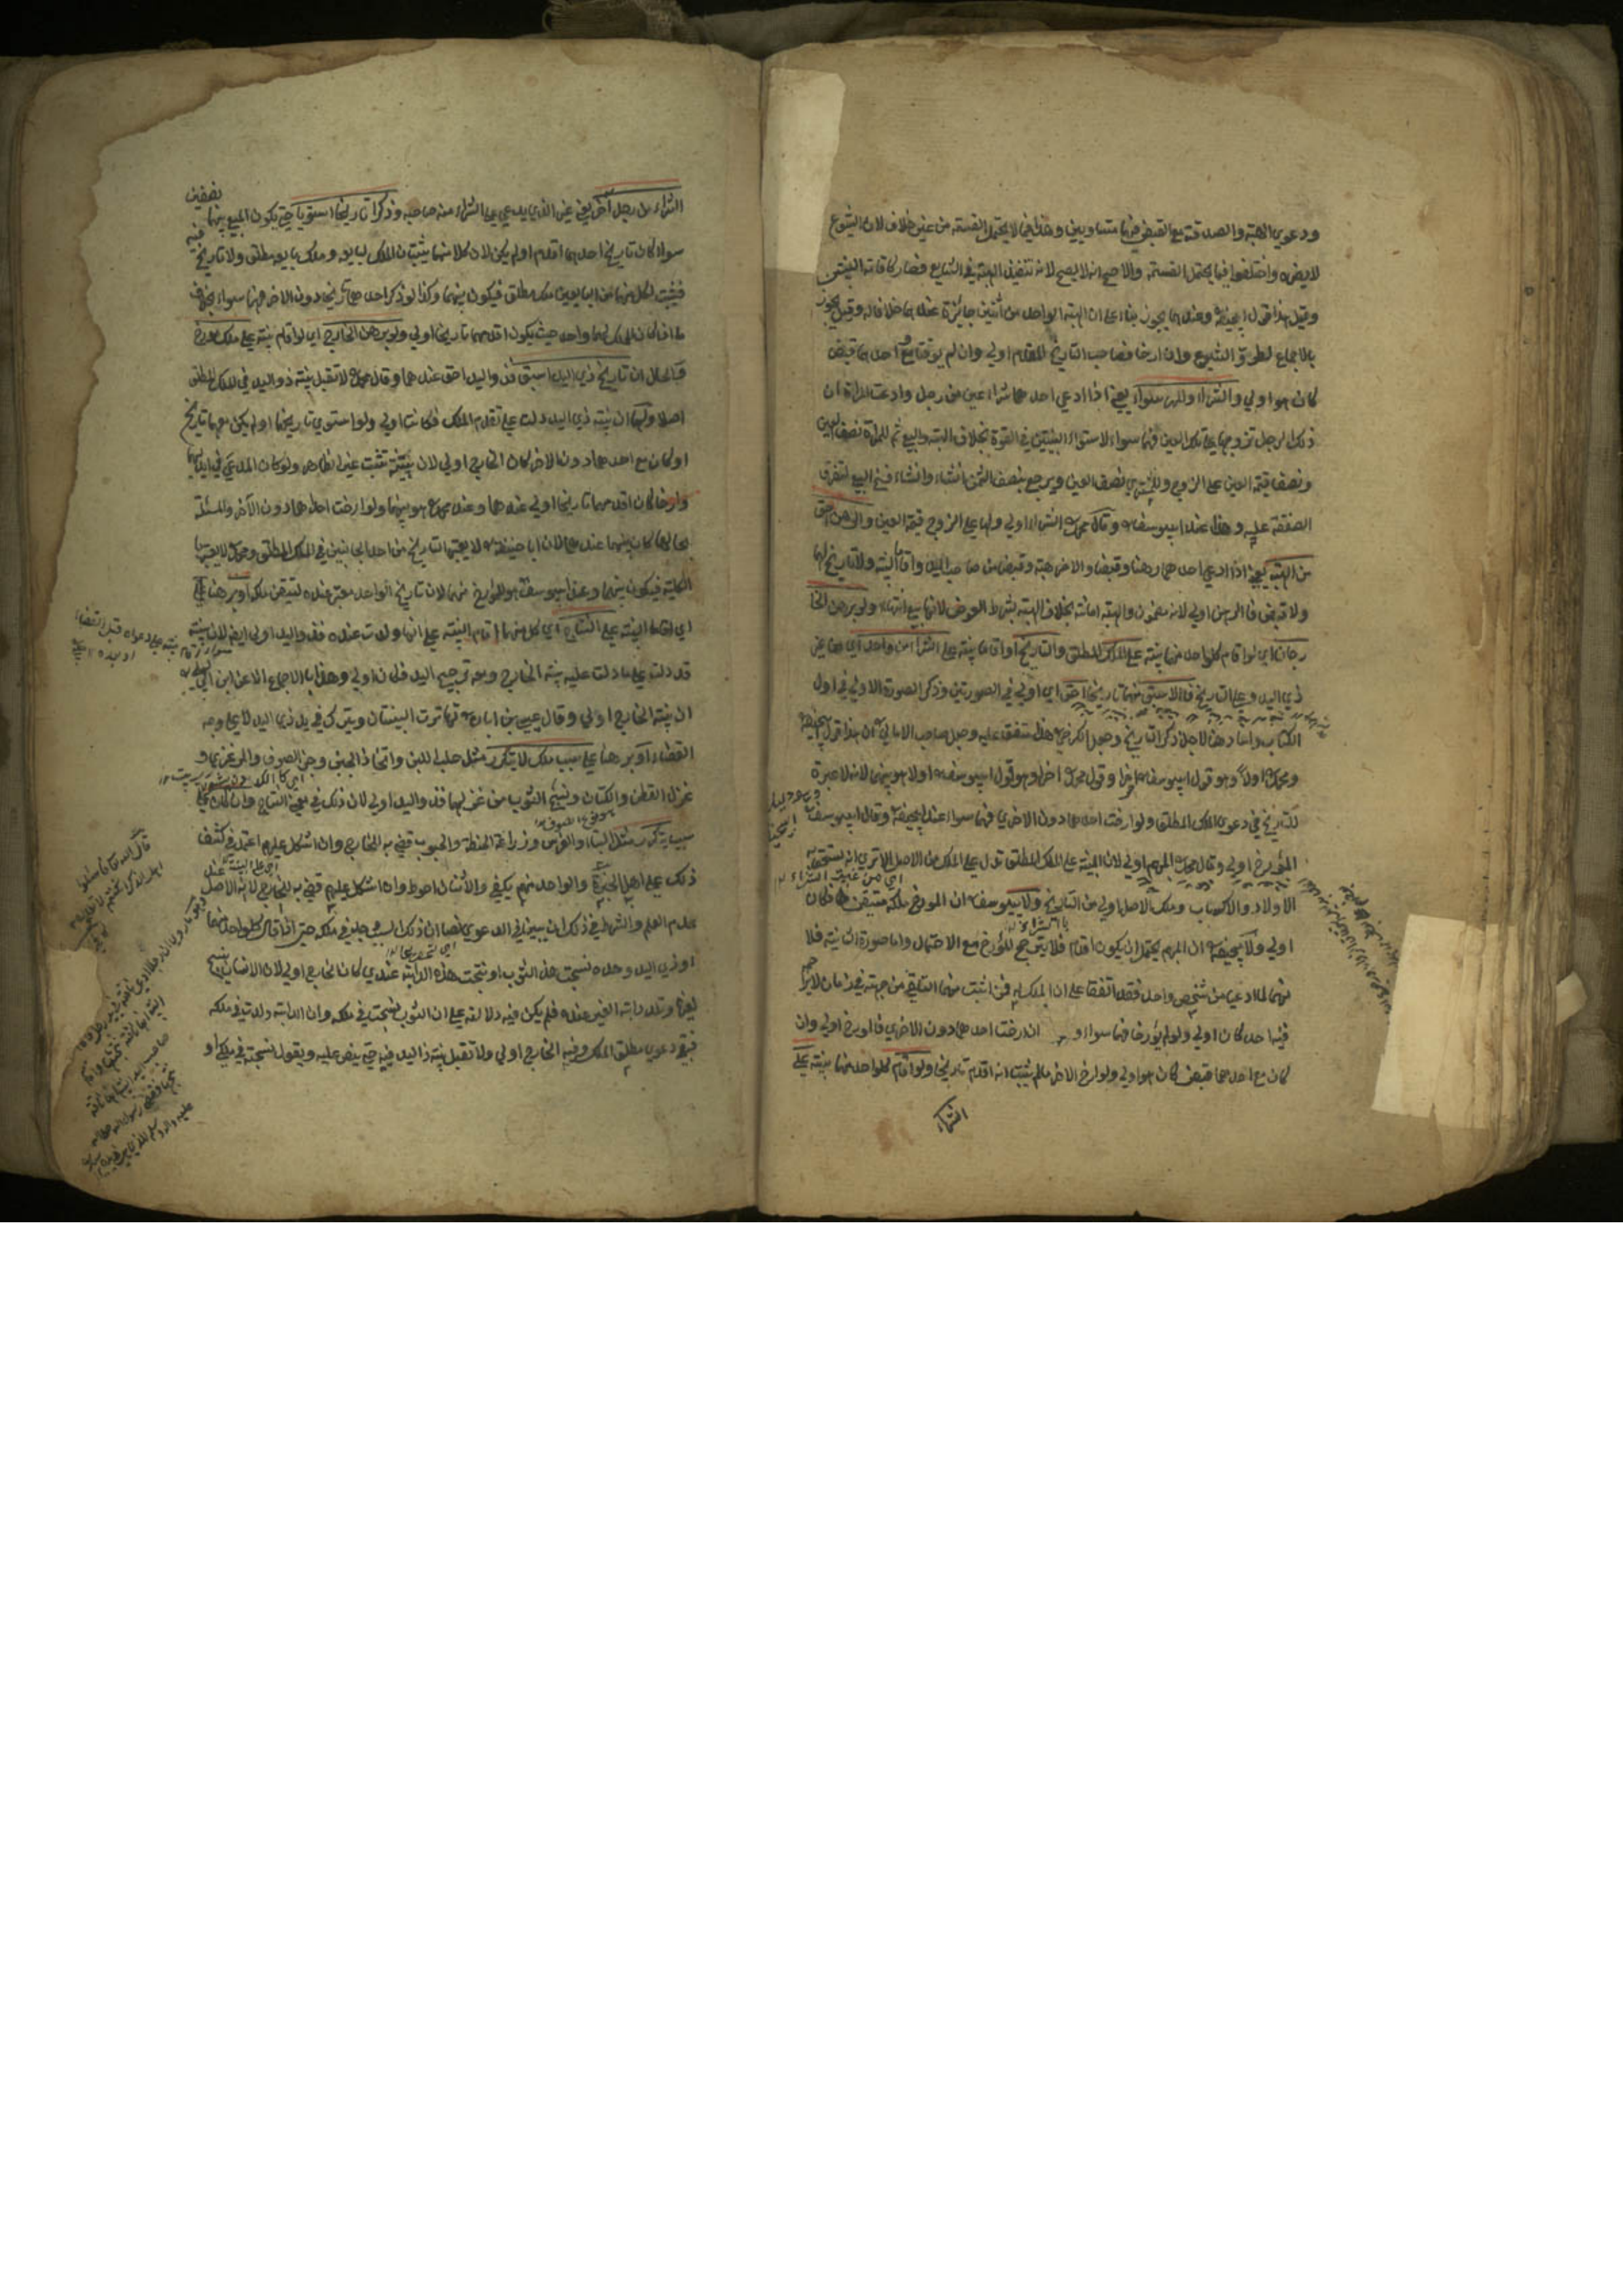 ودعوي الهبة والصدقة مع القبض فيهما متساويين وهذا فيما لا يحتمل القسمة من غير خلاف لان الشيوع
لا يضره واختلفوا فيما يحتمل القسمة والاصح انه لا يصح لانه تنفيذ الهبة في الشايع فصار كاقامة البينتين
وقيل هذا قول ابيحنيفة وعندهما يجوز بناء على ان الهبة الواحد من اثنين جائزة عندهما خلافا له وقيل يجوز
بالاجماع لطروّ الشيوع وان ارخا فصاحب التاريخ المقدم اولي وان لم يوقتا مع احدهما قبض
كان هو اولي والشراء والمهر سواء يعني اذا ادعي احدهما شراء عين من رجل وادعت المراة ان
ذلك الرجل تزوجها علي تلك العين فهما سواء لاستواء البينتين في القوة بخلاف الهبة والبيع ثم للمراة نصف العين
ونصف قيمة العين على الزوج وللمشتري نصف العين ويرجع بنصف الثمن ان شاء وان شاء فسخ البيع لتفرق
الصفقة عليه وهذا عند ابييوسف وقال محمد الشراء اولي ولها علي الزوج قيمة العين والرهن احق
من الهبة يعني اذا ادعي احدهما رهنا وقبضا والاخر هبة وقبضا من صاحب اليد واقاما البينة ولا تاريخ لهما
ولا قبض فالرهن اولي لانه مضمون والهبة امانة بخلاف الهبة بشرط العوض لانها بيع انتهاء ولو برهن الخا
رجان اي لو اقام كل واحد منهما بينة علي الملك المطلق والتاريخ او اقاما بينة علي الشراء من واحد اي من غير
ذي اليد وعلي التاريخ فالاسبق منهما تاريخا احق اي اولي في الصورتين وذكر الصورة الاولي في اول
الكتاب واعاد هنا لاجل ذكر التاريخ وجعل الكرخي هذا متفق عليه وجعل صاحب الامالي ان هذا قول ابيحنيفة
ومحمد اولا وهو قول ابييوسف اخرا وقول محمد اخرا وهو قول ابييوسف اولا هو بينهما لانه لا عبرة
للتاريخ في دعوي الملك المطلق ولو ارخت احدهما دون الاخري فهما سواء عند ابيحنيفة وقال ابييوسف
المؤرخ اولي وقال محمد المبهم اولي لان البينة علي الملك المطلق تدل علي الملك من الاصل الا تري انه يستحق به
الاولاد والاكساب وملك الاصل اولي من التاريخ ولابييوسف ان المورخ ملكه متيقن فكان
اولي ولابيحنيفة ان المبهم يحتمل ان يكون اقدم فلا يترجح المؤرخ مع الاحتمال واما صورة الثانية فلا
نهما لما ادعيا من شخص واحد فقد اتفقا على ان الملك له فمن اثبت منهما التلقي من جهته في زمان لا يزاحمه
فيه احد كان اولي ولو لم يؤرخا فهما سواء او ان ارخت احدهما دون الاخري فالمورخ اولي وان
كان مع احدهما قبض كان هو اولي ولو ارخ الاخر ما لم يثبت انه اقدم تاريخا ولو اقام كل واحد منهما بينة علي
الشراء
الشراء من رجل آخر يعني غير الذي يدعي الشراء منه صاحبه وذكرا تاريخا استويا حتي يكون المبيع بينهما نصفين
سواء كان تاريخ احدهما اقدم او لم يكن لان كلا منهما يثبتان الملك لبايعه وملك بايعه مطلق ولا تاريخ فيه
فيثبت لكل منهما من البايعين ملك مطلق فيكون بينهما وكذا لو ذكر احدهما تاريخا دون الاخر فهما سواء بخلاف
ما اذا كان الملك لهما واحد حيث يكون اقدمهما تاريخا اولي ولو برهن الخارج اي لو اقام بينة علي ملك مورخ
والحال ان تاريخ ذي اليد اسبق فذو اليد احق عندهما وقال محمد لا تقبل بينة ذو اليد في الملك المطلق
اصلا ولهما ان بينة ذي اليد دلت علي تقدم الملك فكانت اولي ولو استوي تاريخهما او لم يكن معهما تاريخ
او كان مع احدهما دون الاخر كان الخارج اولي لان بينته تثبت غير الظاهر ولو كان المدعي في ايديهما
وارخا كان اقدمهما تاريخا اولي عندهما وعند محمد هو بينهما ولو ارخت احدهما دون الآخر والمسئلة
بحالها كان بينهما عندهما لان ابا حنيفة لا يعتبر التاريخ من احد الجانبين في الملك المطلق ومحمد لا يعتبر
الكلية فيكون بينهما وعند ابييوسف هو للمؤرخ منهما لان تاريخ الواحد معتبر عنده لتيقن ملكه او برهنا علي
اي اقاما البينة علي النتاج اي كل منهما اقام البينة علي انها ولدت عنده فذو اليد اولي ايضا لان بينته
قد دلت علي ما دلت عليه بينة الخارج ومعه ترجيح اليد فكان اولي وهذا بالاجماع الا عن ابن ابي ليلي
ان بينة الخارج اولي وقال عيسي بن ابان تهاترت البينتان ويترك في يد ذي اليد لا علي وجه
القضاء او برهنا علي سبب ملك لا يتكرر مثل حلب اللبن واتخاذ الجبن وجز الصوف والمرعزي و
غزل القطن والكتان ونسج الثوب من غزلها فذو اليد اولي لان ذلك في معني النتاج وان كان علي
سبب يتكرر مثل البناء والغرس وزراعة الحنطة والحبوب قضي به للخارج وان اشكل عليهم اعتمد في كشف
ذلك علي اهل الخبرة والواحد منهم يكفي والاثنان احوط وان اشكل عليهم قضي به للخارج لانه الاصل
عدم العلم والشرط في ذلك ان يبين في الدعوي نصا ان ذلك في ملكه حتي اذا قال كل واحد منهما
او ذي اليد وحده نسجت هذا الثوب او نتجت هذه الدابة عندي كان الخارج اولي لان الانسان ينسج
لغيره وتلد دابة الغير عنده فلم يكن فيه دلالة علي ان الثوب نسجت في ملكه وان الدابة ولدت في ملكه
فبقي دعوي مطلق الملك وفيه الخارج اولي ولا تقبل بينة ذا اليد فيه حتي ينص عليه ويقول نسجته في ملكي او